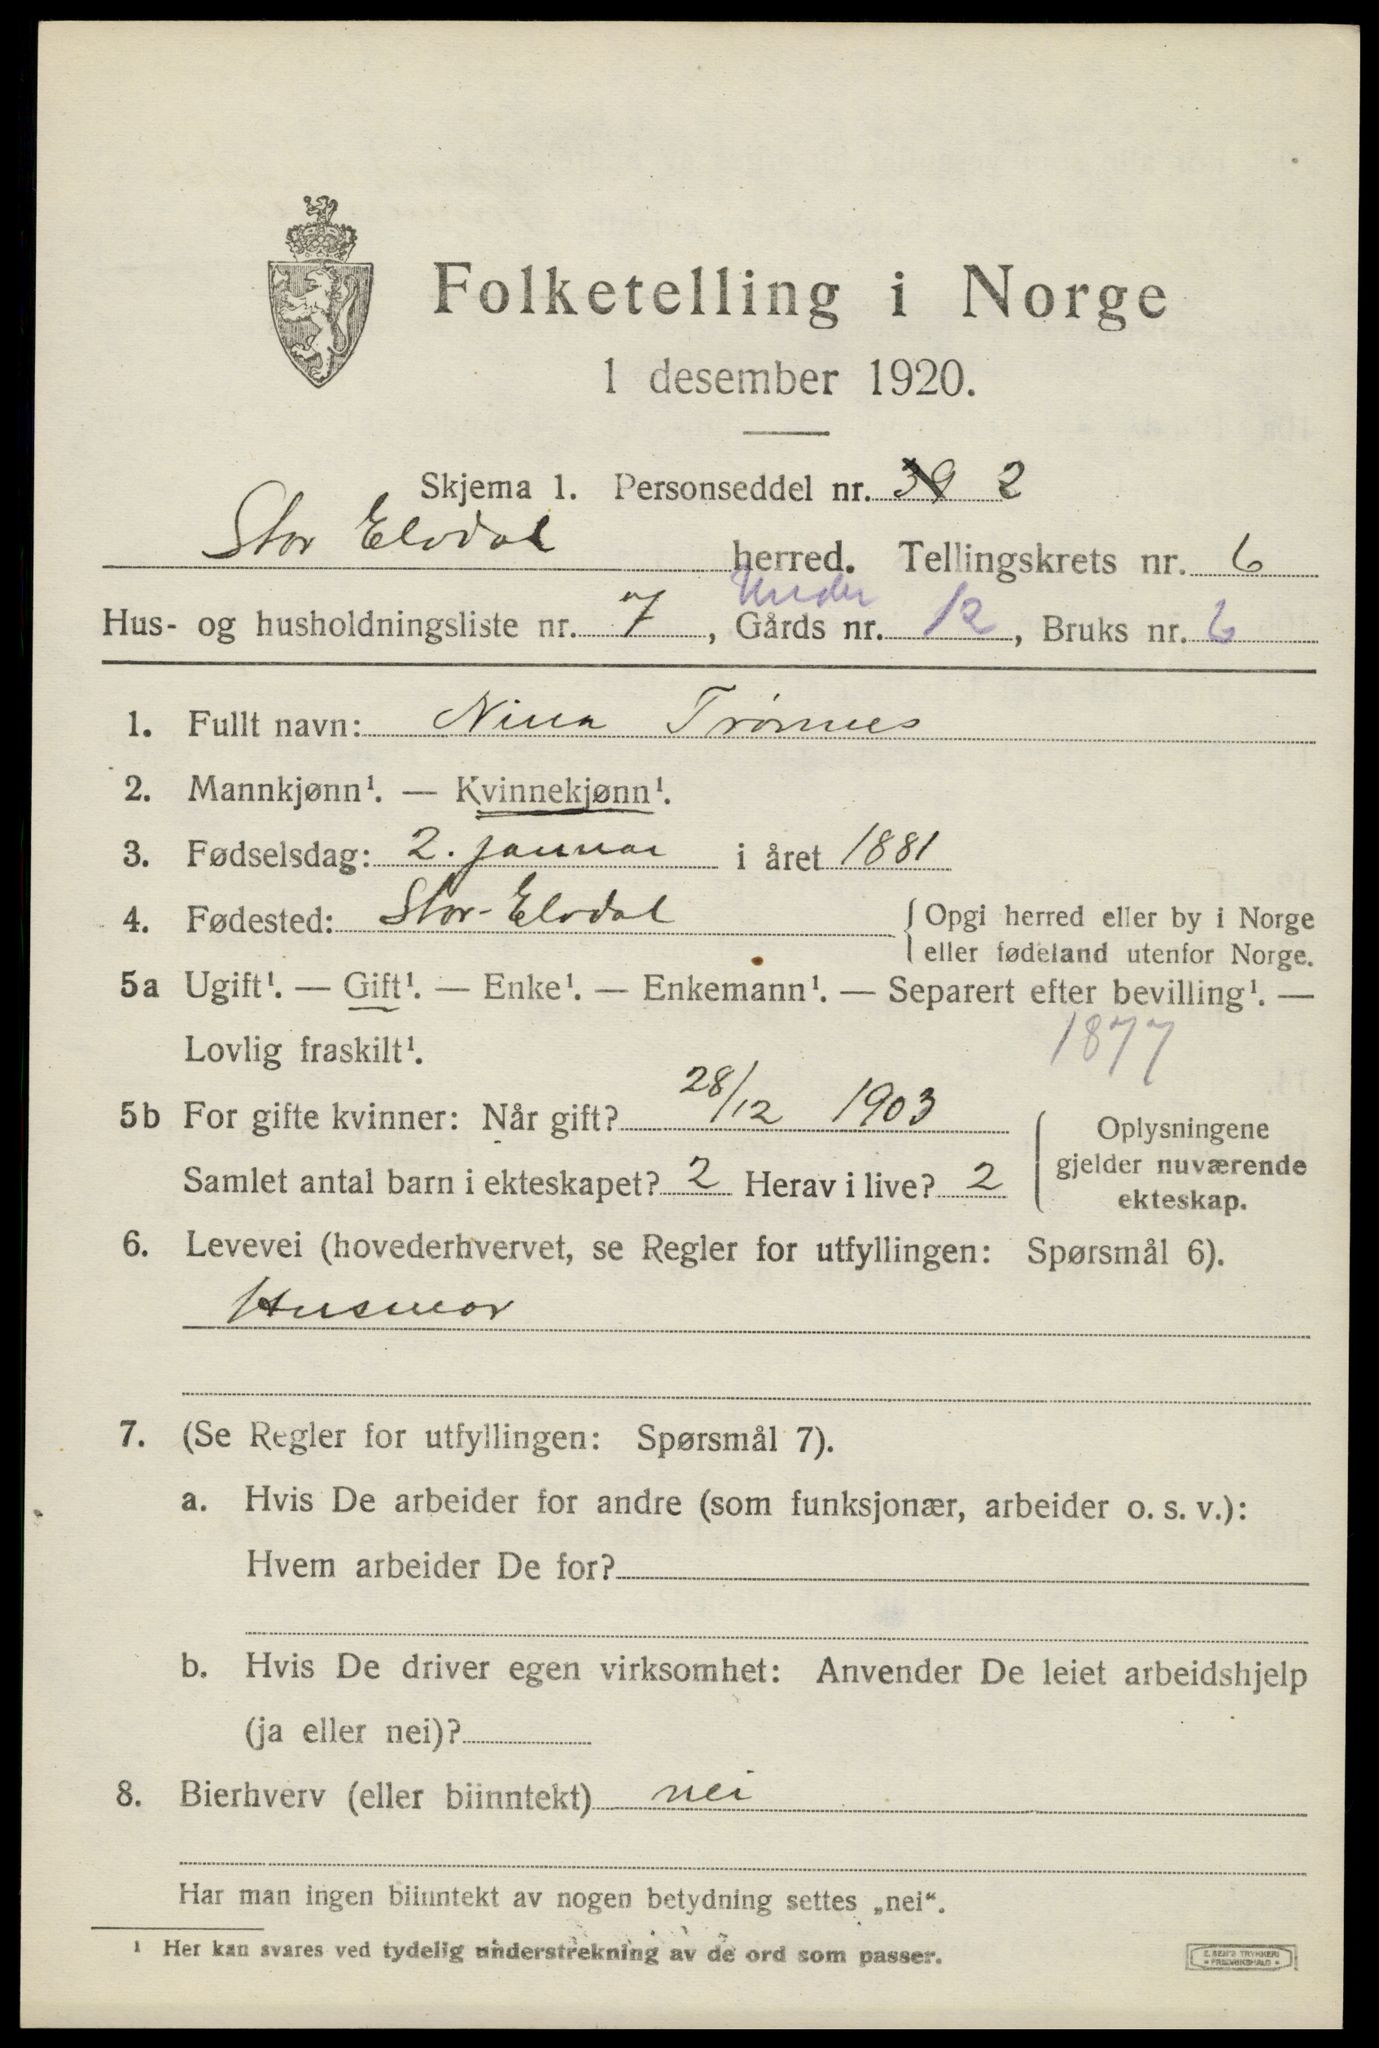 Folketelling i Norge
1 desember 1920.
Skjema 1. Personseddel nr. 39 2
Stor Elvdal herred. Tellingskrets nr. 6
Under
Hus- og husholdningsliste nr. 7, Gårds nr. 12, Bruks nr. 6
1. Fullt navn: Nina Trønnes
2. Mannkjønn¹. — Kvinnekjønn¹.
3. Fødselsdag: 2. januar i året 1881
4. Fødested: Stor-Elvdal { Opgi herred eller by i Norge
eller fødeland utenfor Norge.
5a Ugift¹. — Gift¹. — Enke¹. — Enkemann¹. — Separert efter bevilling¹. —
Lovlig fraskilt¹. 1877
5b For gifte kvinner: Når gift? 28/12 1903
Samlet antal barn i ekteskapet? 2 Herav i live? 2
Oplysningene
gjelder nuværende
ekteskap.
6. Levevei (hovederhvervet, se Regler for utfyllingen: Spørsmål 6).
Husmor
7. (Se Regler for utfyllingen: Spørsmål 7).
a. Hvis De arbeider for andre (som funksjonær, arbeider o. s. v.):
Hvem arbeider De for?
b. Hvis De driver egen virksomhet: Anvender De leiet arbeidshjelp
(ja eller nei)?
8. Bierhverv (eller biinntekt) nei
Har man ingen biinntekt av nogen betydning settes „nei“.
¹ Her kan svares ved tydelig understrekning av de ord som passer.
E. SEM'S TRYKKERI
FREDRIKSHALD